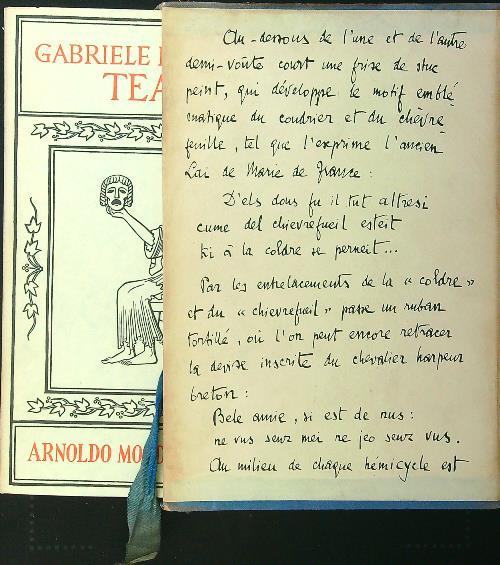 GABRIELE
TEA
ARNOLDO MO
Au-dessous de l'une et de l'autre
demi-voûte court une frise de stuc
peint, qui développe le motif emblé
matique du coudrier et du chèvre
feuille, tel que l'exprime l'ancien
Lai de Marie de France :
D'els dous fu il tut altresi
cume del chievrefueil esteit
ki à la coldre se perneit...
Par les entrelacements de la « coldre »
et du « chievrefueil » passe un ruban
tortillé, où l'on peut encore retracer
la devise inscrite du chevalier harpeur
breton :
Bele amie, si est de nus :
ne vus senz mei ne jeo senz vus.
Au milieu de chaque hémicycle est